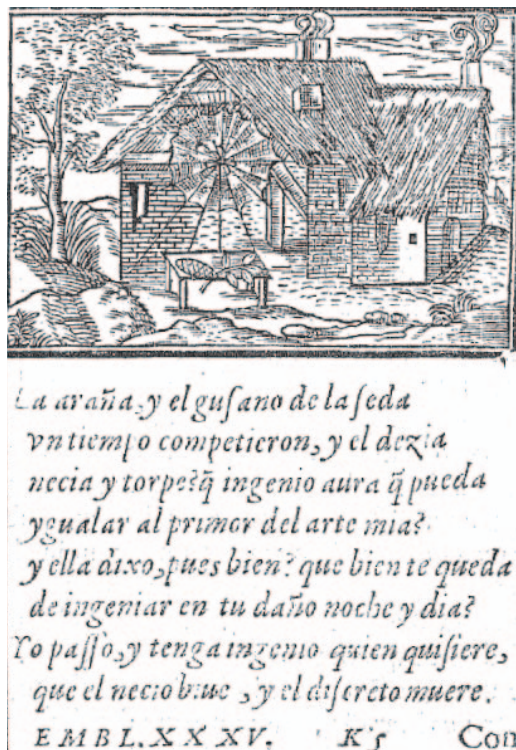 La araña, y el guſano de la ſeda
vn tiempo competieron, y el dezia
necia y torpe? q̃ ingenio aura q̃ pueda
ygualar al primor del arte mia?
y ella dixo, pues bien? que bien te queda
de ingeniar en tu daño noche y dia?
Yo paſſo, y tenga ingenio quien quiſiere,
que el necio biue, y el diſcreto muere.
EMBL. XXXV. Con